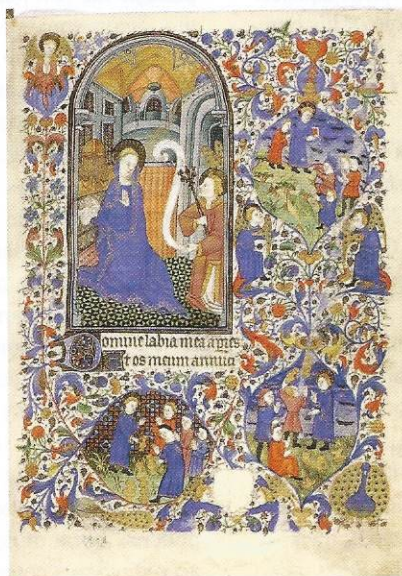 Domine labia mea apies
t os meum annuci